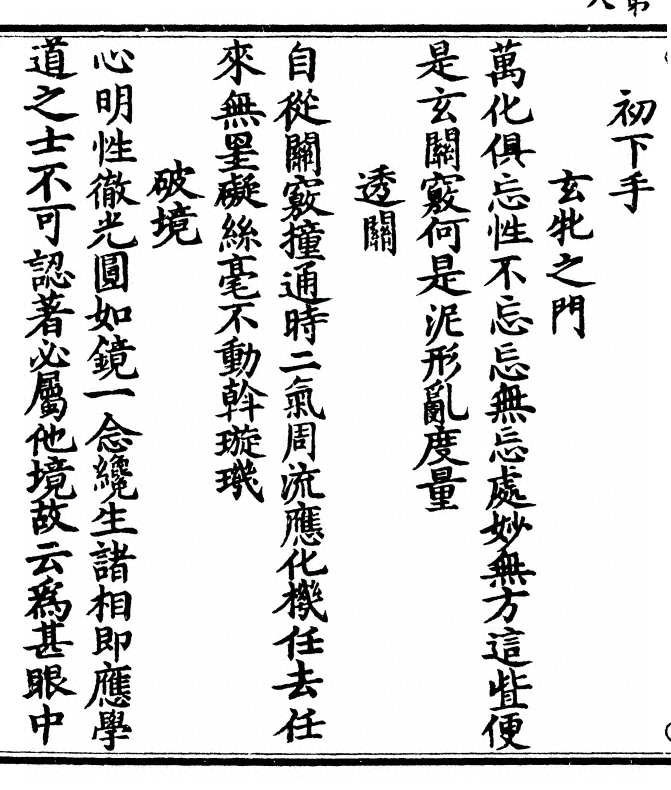 初下手
玄牝之門
萬化俱忘性不忘忘無忘處妙無方這些便
是玄關竅何是泥形亂度量
透關
自從關竅撞通時二氣周流應化機任去任
來無罣礙絲毫不動斡璇璣
破境
心明性徹光圓如鏡一念纔生諸相即應學
道之士不可認著必屬他境故云爲甚眼中